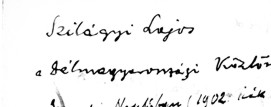 Szilágyi Lajos
a Délmagyarországi Közlö
(1902